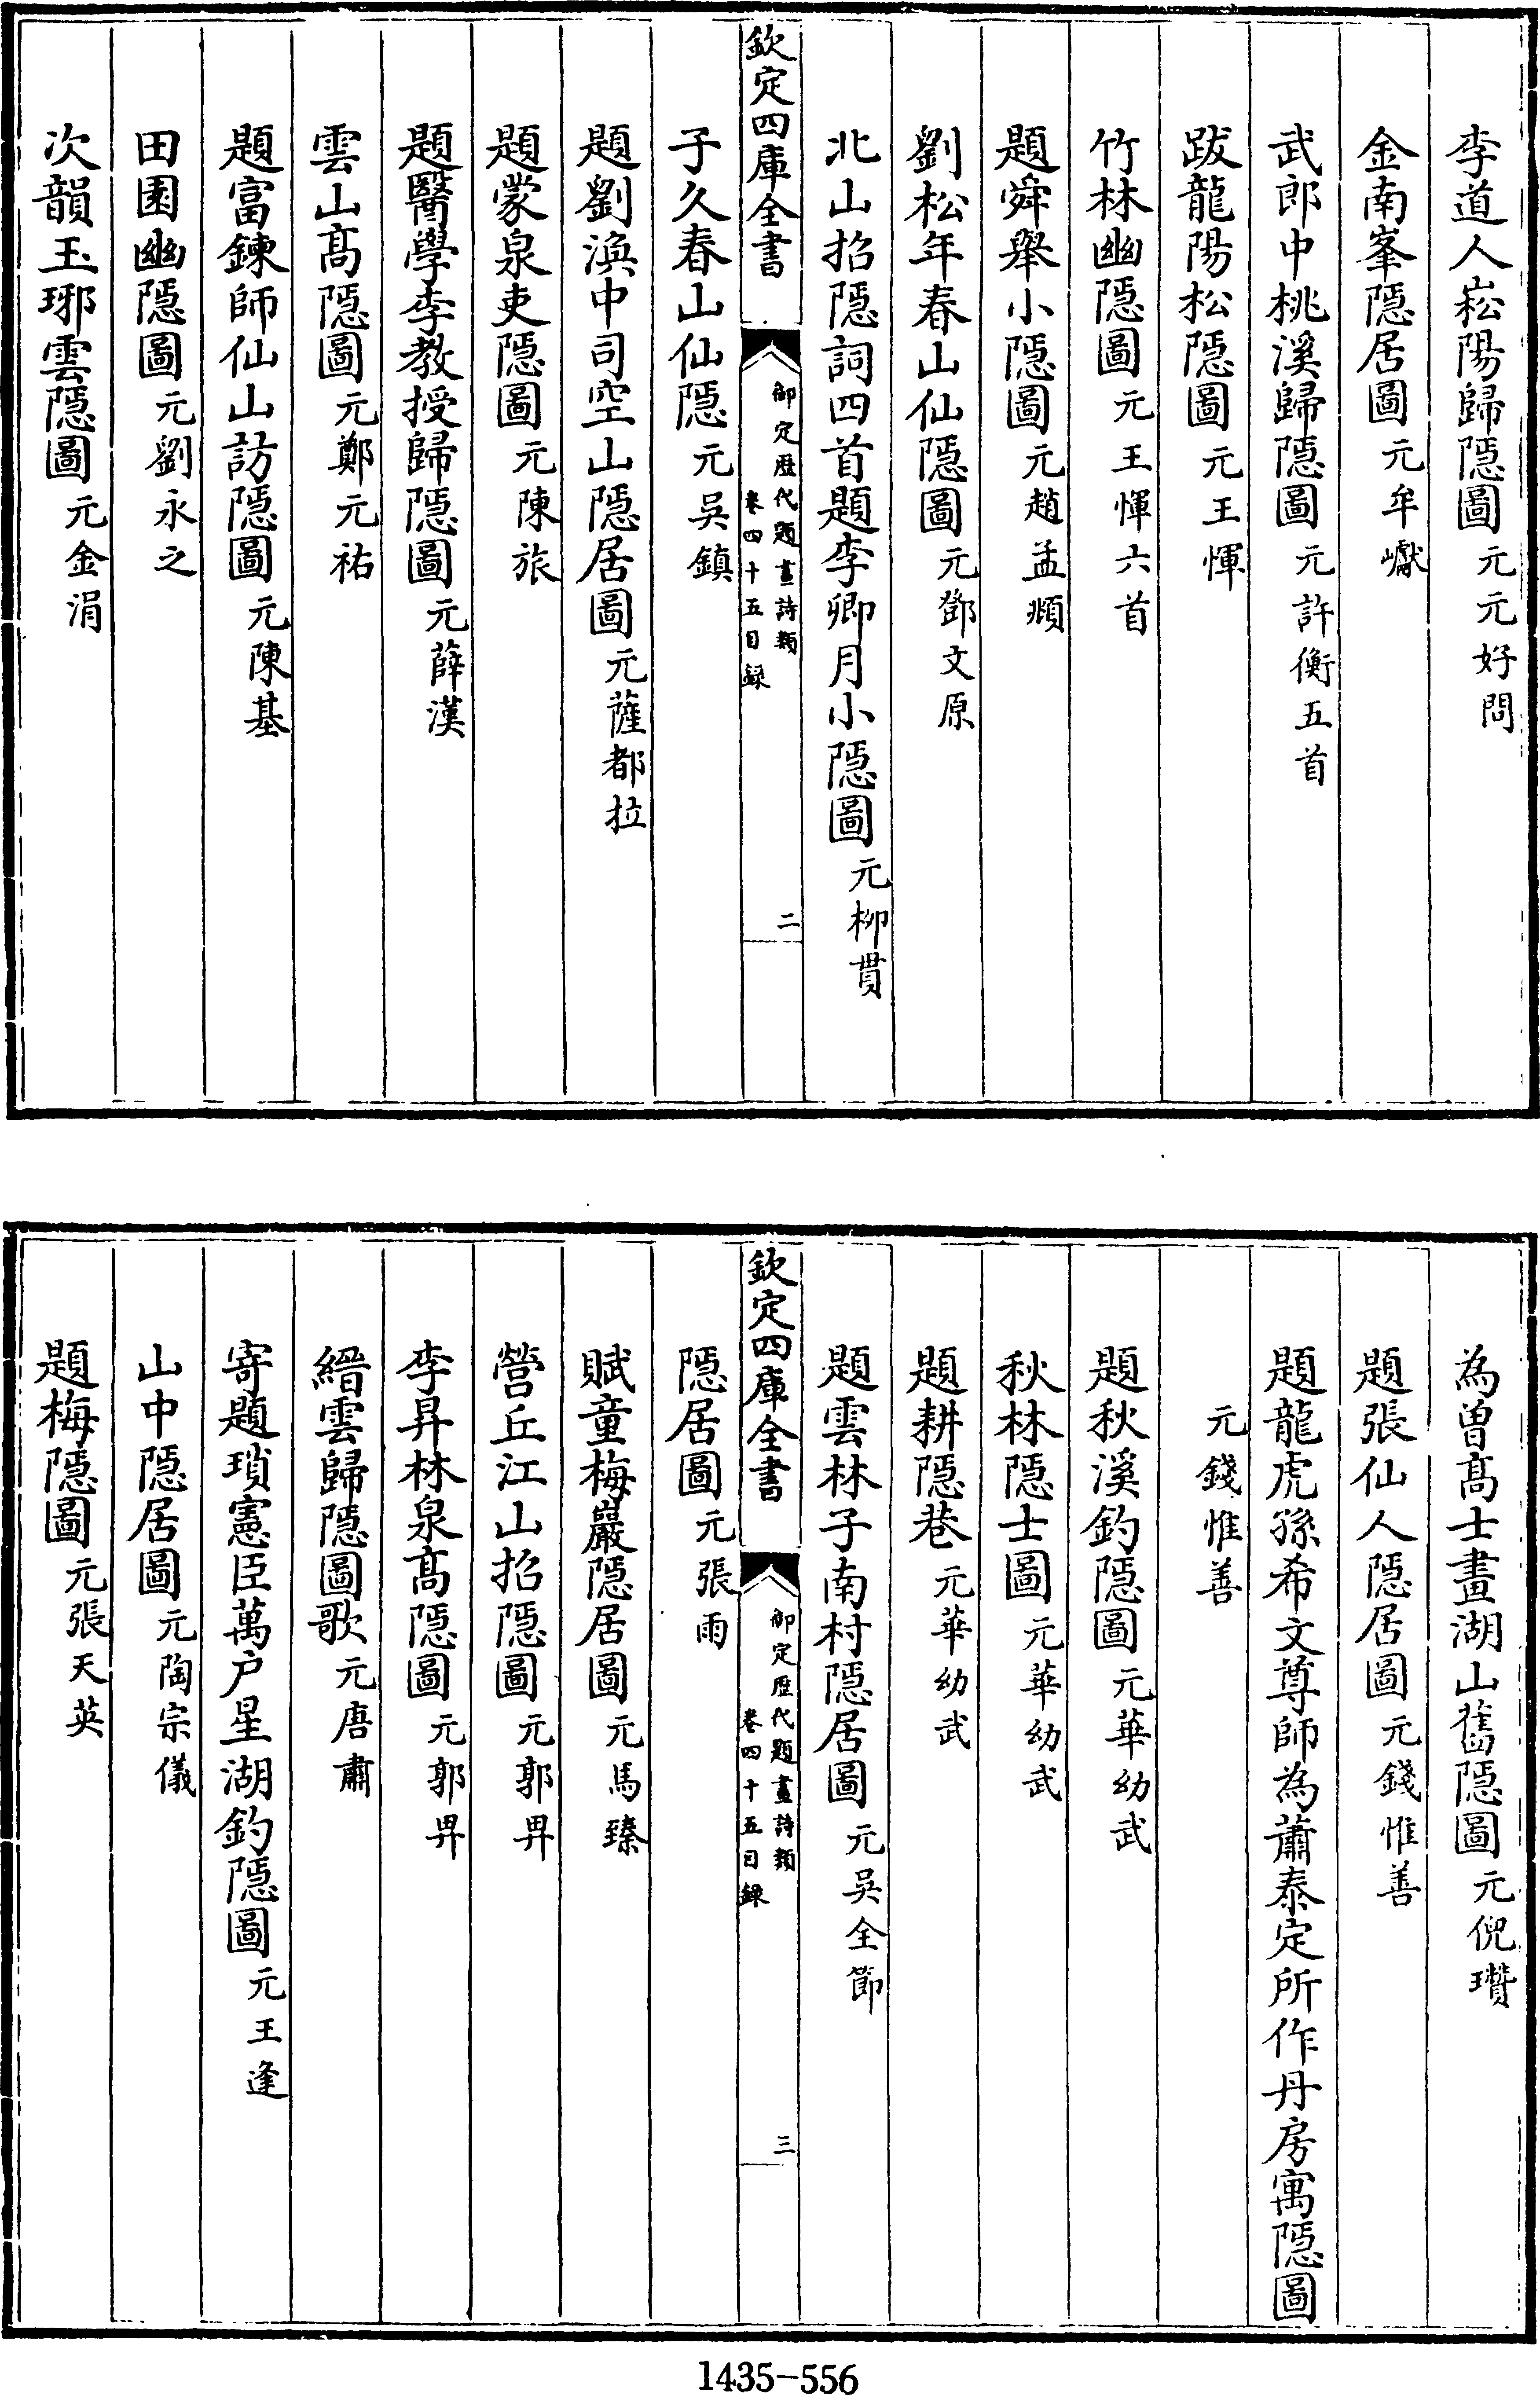 李道人崧陽歸隱圖 元元好問
金南峯隱居圖 元牟巘
武郎中桃溪歸隱圖 元許衡五首
跋龍陽松隱圖 元王惲
竹林幽隱圖 元王惲六首
題舜舉小隱圖 元趙孟頫
劉松年春山仙隱圖 元鄧文原
北山招隱詞四首題李卿月小隱圖 元柳貫
欽定四庫全書
御定歷代題畫詩類
卷四十五目錄
二
子久春山仙隱 元吳鎮
題劉渙中司空山隱居圖 元薩都拉
題蒙泉吏隱圖 元陳旅
題醫學李教授歸隱圖 元薛漢
雲山髙隱圖 元鄭元祐
題富鍊師仙山訪隱圖 元陳基
田園幽隱圖 元劉永之
次韻玉琊雲隱圖 元金涓
為曽髙士畫湖山舊隱圖 元倪瓚
題張仙人隱居圖 元錢惟善
題龍虎孫希文尊師為蕭泰定所作丹房寓隱圖
元錢惟善
題秋溪釣隱圖 元華幼武
秋林隱士圖 元華幼武
題耕隱巷 元華幼武
題雲林子南村隱居圖 元吳全節
欽定四庫全書
御定歷代題畫詩類
卷四十五目錄
三
隱居圖 元張雨
賦童梅巖隱居圖 元馬臻
營丘江山招隱圖 元郭畀
李昇林泉髙隱圖 元郭畀
縉雲歸隱圖歌 元唐肅
寄題瑣憲臣萬户星湖釣隱圖 元王逢
山中隱居圖 元陶宗儀
題梅隱圖 元張天英
1435-556